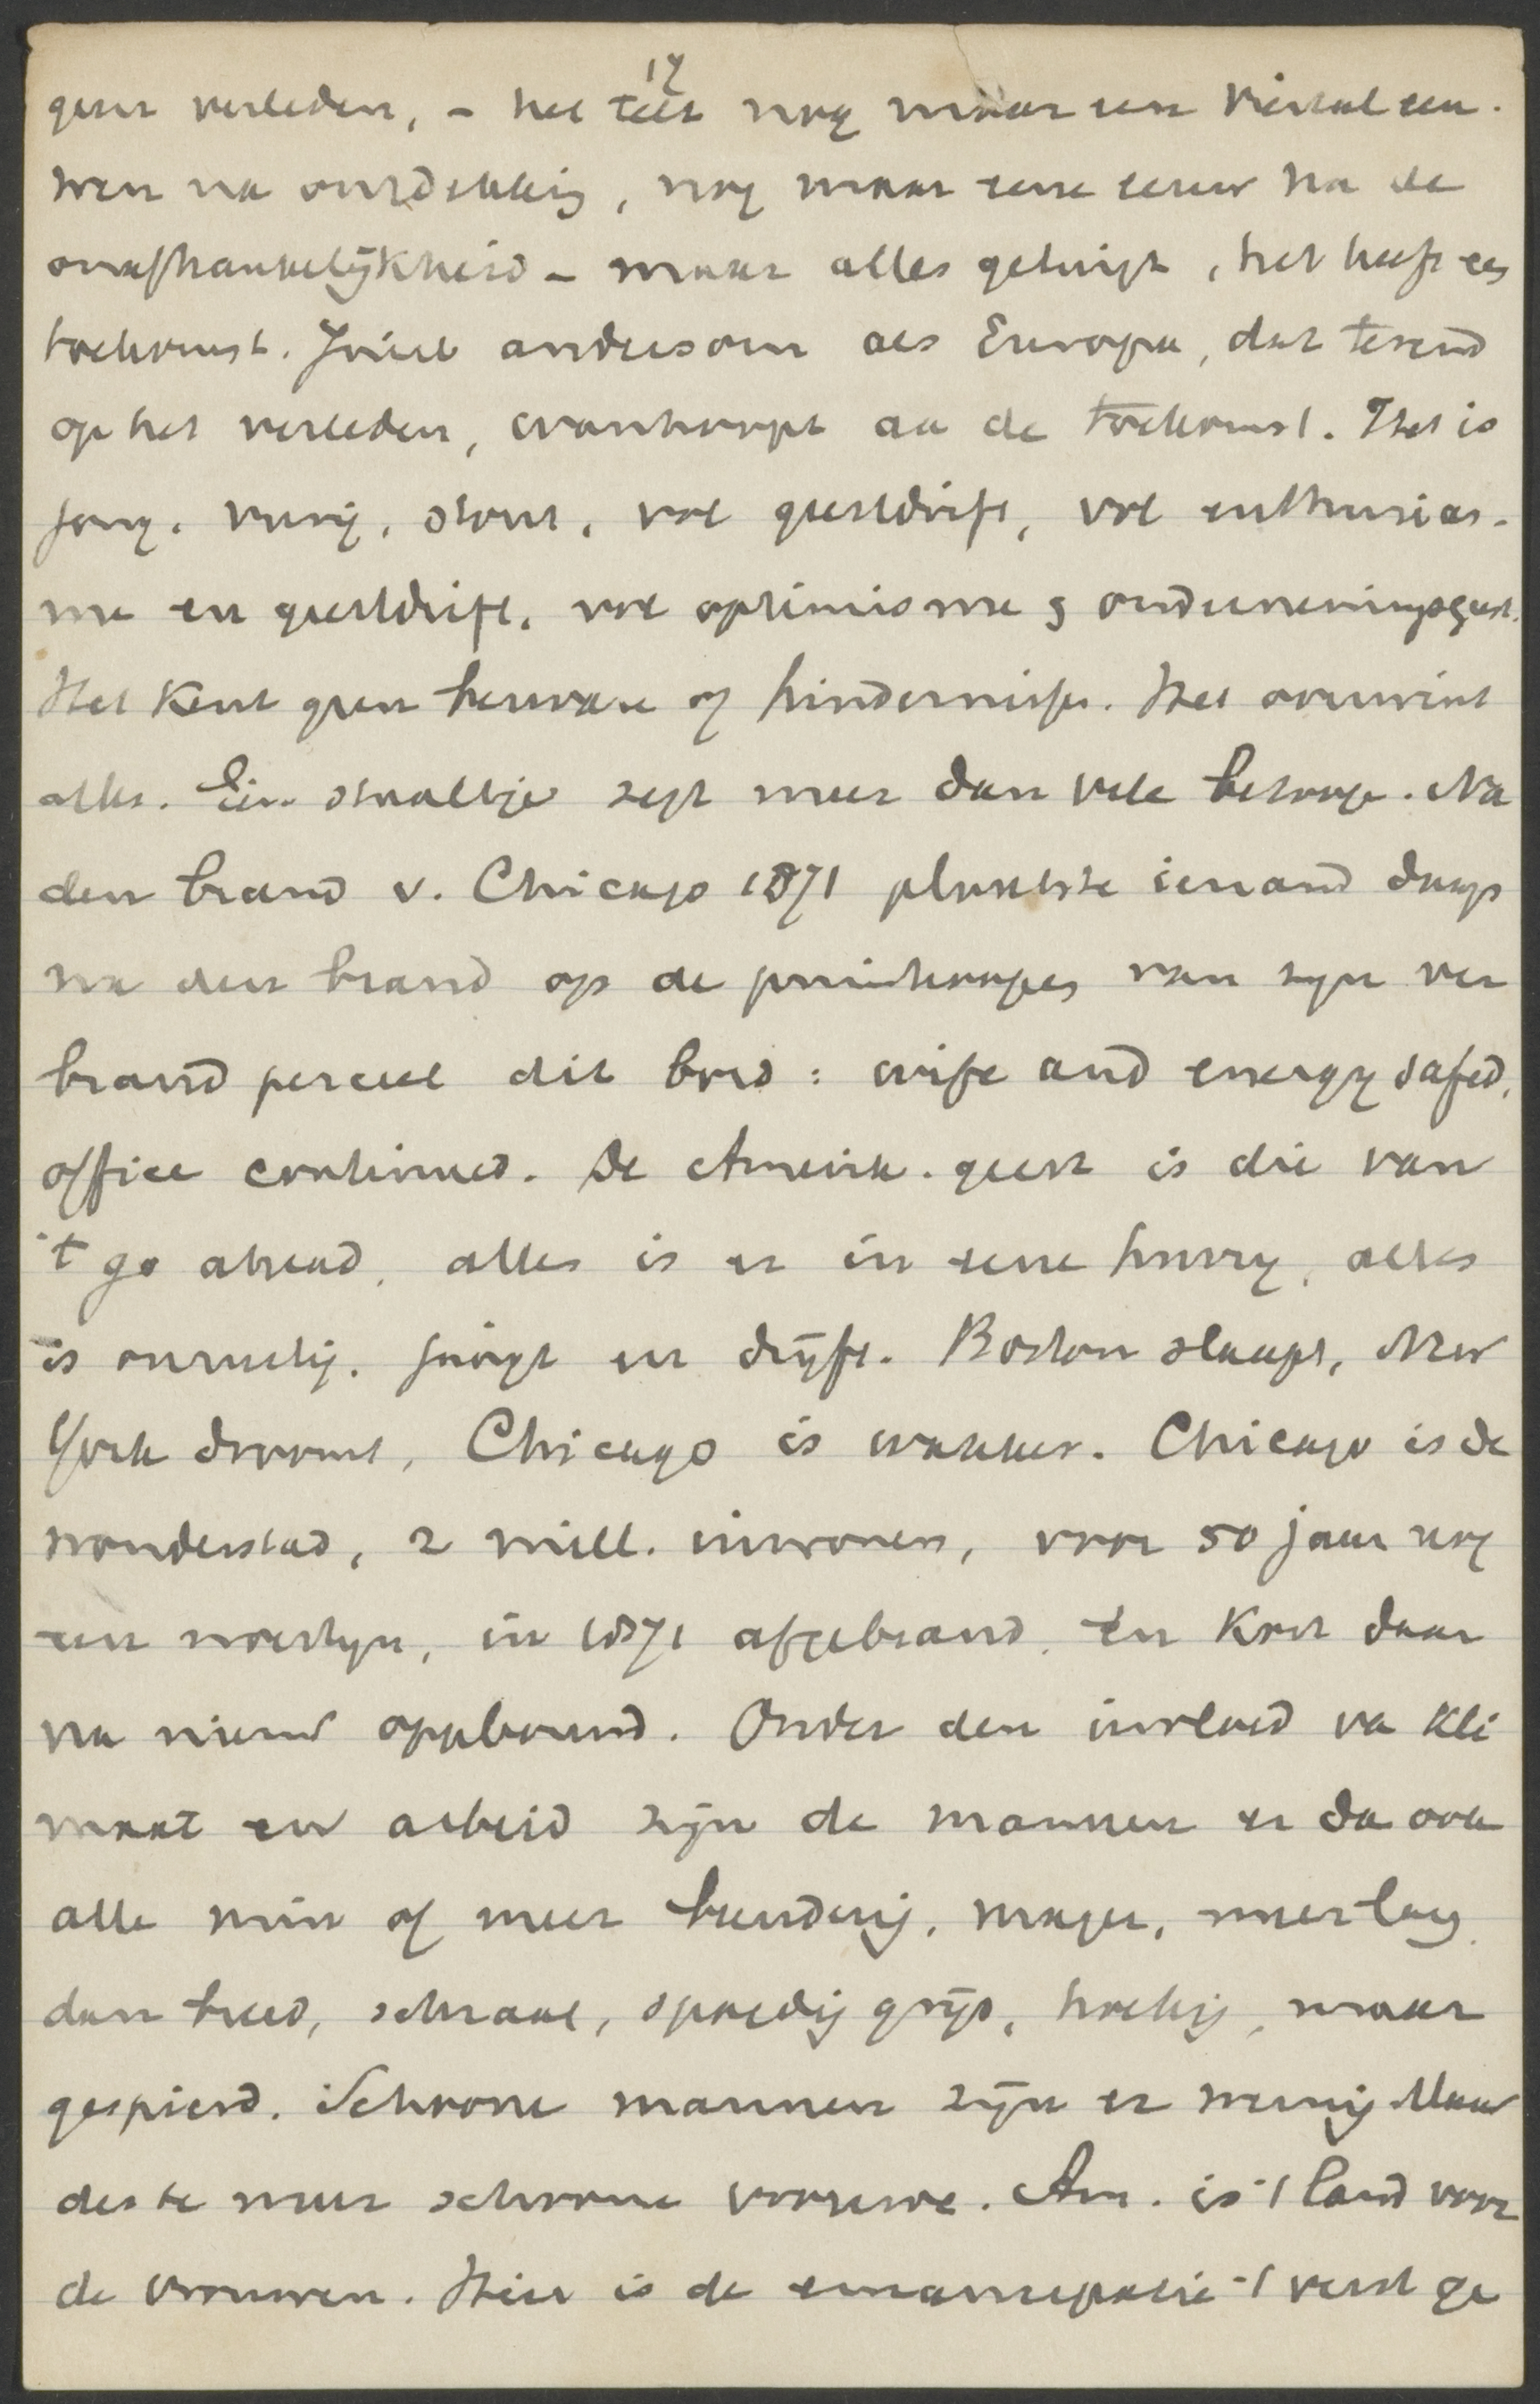 17
geen verleden, - het telt nog maar een viertal eeu-
wen na ontdekking, nog maar eene eeuw na de
onafhankelijkheid - maar alles getuigt, het heeft een
toekomst. Juist andersom als Europa, dat terend
op het verleden, wanhoopt aa de toekomst. Het is
jong, vurig, stout, vol geestdrift, vol enthusias-
me en geestdrift, vol optimisme & ondernemingsgeest.
Het kent geen bezwaren of hindernissen. Het overwint
alles. Eén staaltje zegt meer dan vele betooge. Na
den brand v. Chicago 1871 plaatste iemand daags
na den brand op de puinhoopen van zijn ver
brand perceel dit bord: wife and energy safed,
office continued. De Amerik. geest is die van
't go ahead, alles is er in eene hurry, alles
is onrustig, jaagt en drijft. Boston slaapt, New
York droomt, Chicago is wakker. Chicago is de
wonderstad, 2 mill. inwoners, voor 50 jaar nog
een woestijn, in 1871 afgebrand, en kort daar
na nieuw opgebouwd. Onder den invloed va kli
maat en arbeid zijn de mannen er da ook
alle min of meer beenderig, mager, meer lang
dan breed, schraal, spoedig grijs, hoekig, maar
gespierd. Schoone mannen zijn er weinig. Maar
des te meer schoone vrouwe. Am. is 't land voor
de vrouwen. Hier is de emancipatie 't verst ge